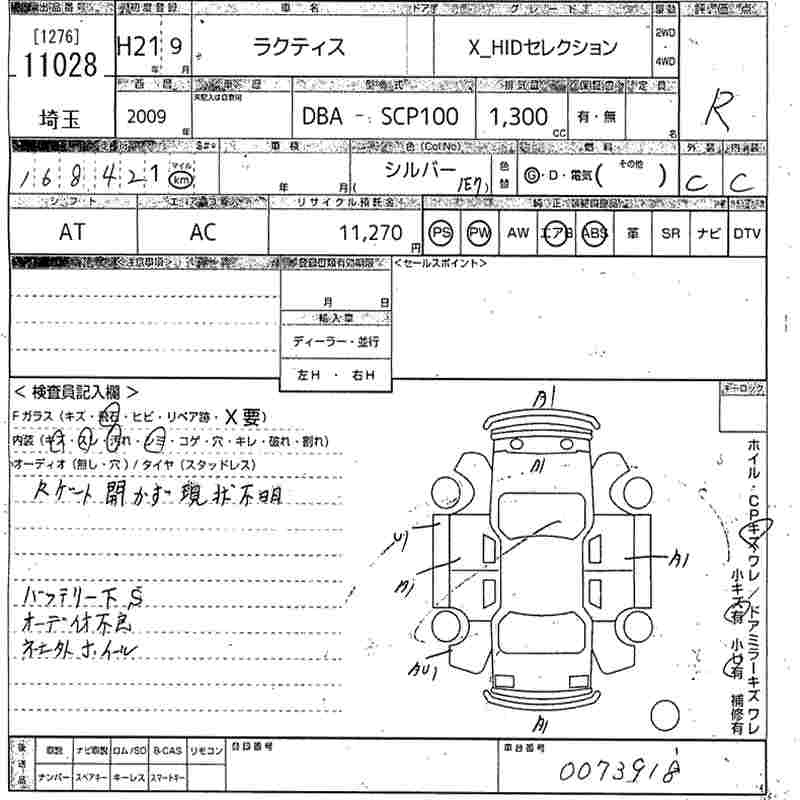 出品番号 初度登録 車名 ドア グレード 駆動 評価点
[1276]
11028 H21 年 9 月 ラクティス X_HIDセレクション 2WD ・ 4WD R
西暦 車歴 型式 排気量 定員
埼玉 2009 年 DBA - SCP100 1,300 CC 有・無 名
車検 色(ColNo) 燃料 外装 内装
168421 マイル km 年 月 シルバー (1E7) 色替 G・D・電気( その他 ) C C
シフト エアコン リサイクル預託金
AT AC 11,270 円 PS PW AW エアB ABS 革 SR ナビ DTV
注意事項 登録書類有効期限 <セールスポイント>
月 日
輸入車
ディーラー・並行
左H ・ 右H
< 検査員記入欄 > キーロック
Fガラス (キズ・飛石・ヒビ・リペア跡・X要)
内装 (キズ・スレ・汚れ・シミ・コゲ・穴・キレ・破れ・割れ)
オーディオ (無し・穴) / タイヤ (スタッドレス)
Rゲート 開かず 現状不明
バッテリー下 S
オーディオ不良
ホイール
A1
A1
U1
A1
A1
AU1
A1
ホイル・CPキズワレ/ドアミラーキズワレ
小キズ有 小凹有 補修有
後送品 取説 ナビ取説 ロム/SD B-CAS リモコン 登録番号 車台番号
ナンバー スペアキー キーレス スマートキー 0073918